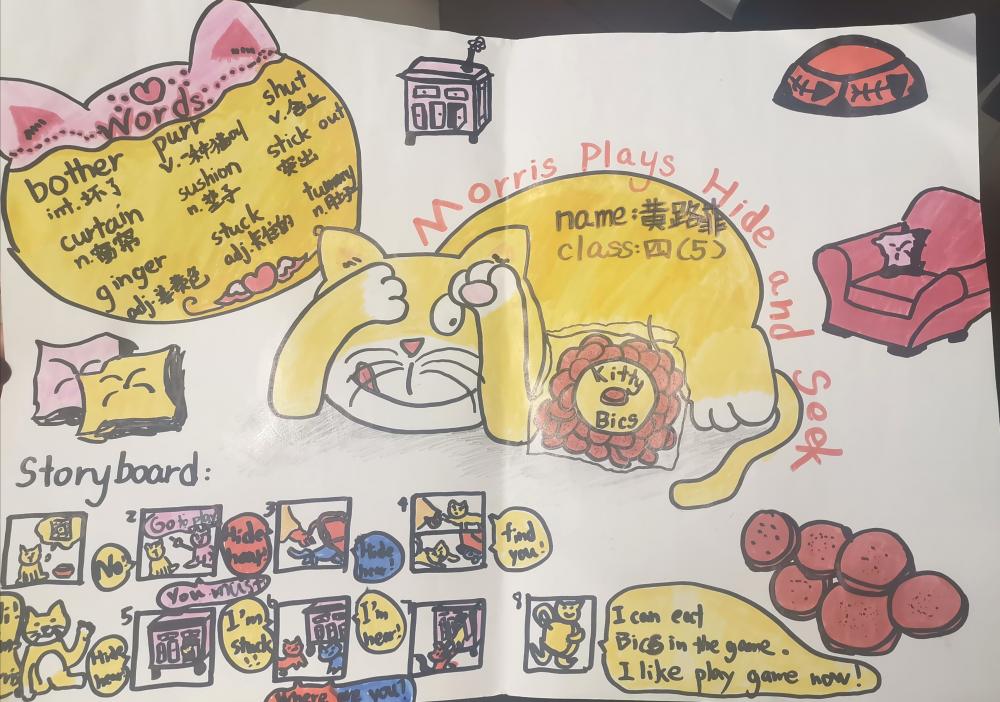 Words
bother
int.坏了
curtain
n.窗帘
ginger
adj.姜黄色
purr
v.一种猫叫
sushion
n.垫子
stuck
adj.卡住的
shut
v.合上
stick out
突出
tummy
n.肚子
Morris Plays Hide and Seek
name:黄路菲
class:四(5)
Kitty
Bics
Storyboard:
No!
2
Go to play
You must!
Hide hear!
3
Hide hear!
4
find you!
Hi!
Hide hear!
5
I'm stuck!
6
Where are you?
I'm hear!
7
8
I can eat
Bics in the game.
I like play game now!